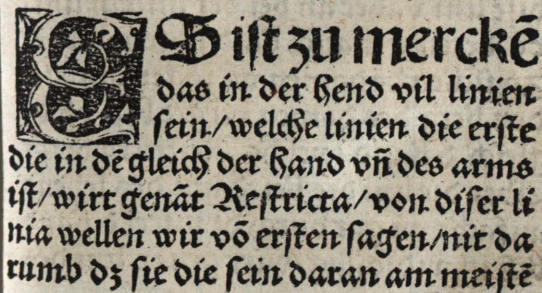 ES ist zu merckē
das in der hend vil linien
sein/welche linien die erste
die in dē gleich der hand vñ des arms
ist/wirt genāt Restricta/von diser li
nia wellen wir vō ersten sagen/nit da
rumb dz sie die sein daran am meistē